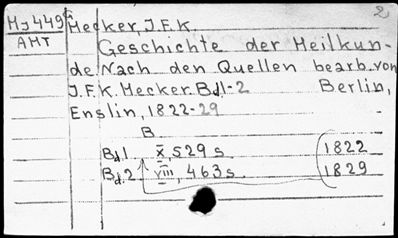 Mj449 Hecker, J.F.K. 2
AMT Geschichte der Heilkun-
de. Nach den Quellen bearb. von
J.F.K. Hecker. Bd.1-2 Berlin,
Enslin, 1822-29
B
Bd.1 X, 529 s. 1822
Bd.2 VIII, 463 s. 1829